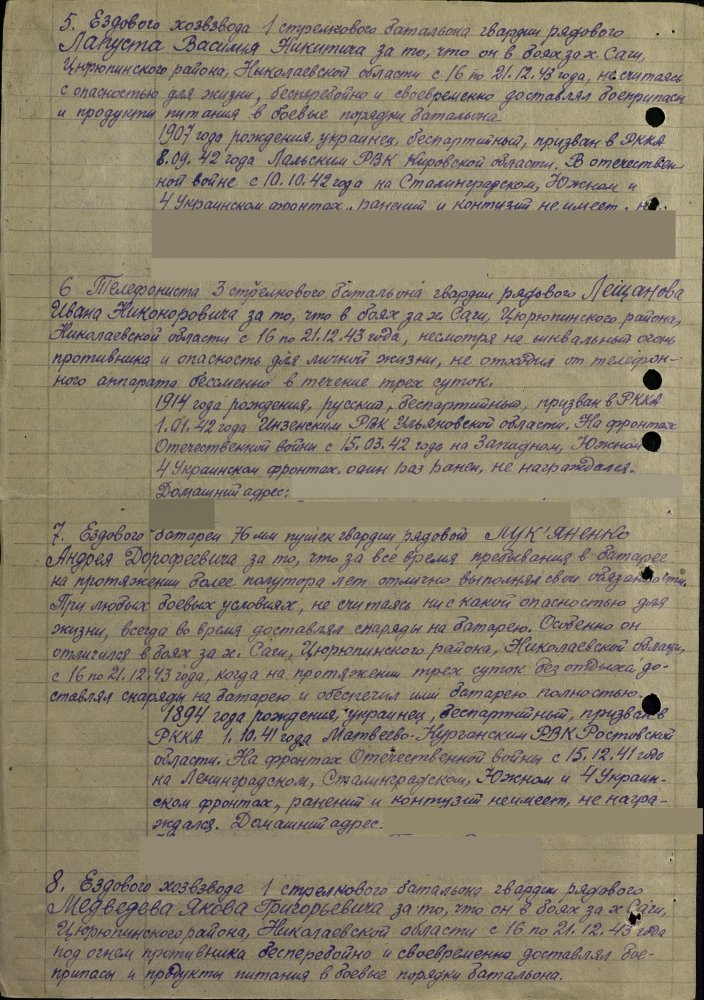 5. Ездового хозвзвода 1 стрелкового батальона гвардии рядового
Лапуста Василия Никитича за то, что он в боях за х. Саги,
Цюрюпинского района, Николаевской области с 16 по 21.12.43 года, не считаясь
с опасностью для жизни, бесперебойно и своевременно доставлял боеприпасы
и продукты питания в боевые порядки батальона.
1907 года рождения, украинец, беспартийный, призван в РККА
8.09.42 года Лальским РВК Кировской области. В отечествен-
ной войне с 10.10.42 года на Сталинградском, Южном и
4 Украинском фронтах, ранений и контузий не имеет, не
6 Телефониста 3 стрелкового батальона гвардии рядового Лещанова
Ивана Никоноровича за то, что в боях за х. Саги, Цюрюпинского района,
Николаевской области с 16 по 21.12.43 года, несмотря на шквальный огонь
противника и опасность для личной жизни, не отходил от телефон-
ного аппарата бессменно в течение трех суток.
1914 года рождения, русский, беспартийный, призван в РККА
1.01.42 года Инзенским РВК Ульяновской области. На фронтах
Отечественной войны с 15.03.42 года на Западном, Южном
4 Украинском фронтах. один раз ранен, не награждался.
Домашний адрес:
7. Ездового батареи 76 мм пушек гвардии рядовой ЛУК'ЯНЕНКО
Андрея Дорофеевича за то, что за всё время пребывания в батарее
на протяжении более полутора лет отлично выполнял свои обязанности.
При любых боевых условиях, не считаясь ни с какой опасностью для
жизни, всегда во время доставлял снаряды на батарею. Особенно он
отличился в боях за х. Саги, Цюрюпинского района, Николаевской области,
с 16 по 21.12.43 года, когда на протяжении трех суток без отдыха до-
ставлял снаряды на батарею и обеспечил ими батарею полностью.
1894 года рождения, украинец, беспартийный, призван в
РККА 1.10.41 года Матвеево-Курганским РВК Ростовской
области. На фронтах Отечественной войны с 15.12.41 года
на Ленинградском, Сталинградском, Южном и 4 Украин-
ском фронтах, ранений и контузий не имеет, не награ-
ждался. Домашний адрес:
8. Ездового хозвзвода 1 стрелкового батальона гвардии рядового
Медведева Якова Григорьевича за то, что он в боях за х Саги,
Цюрюпинского района, Николаевской области с 16 по 21.12.43 года
под огнем противника бесперебойно и своевременно доставлял бое-
припасы и продукты питания в боевые порядки батальона.